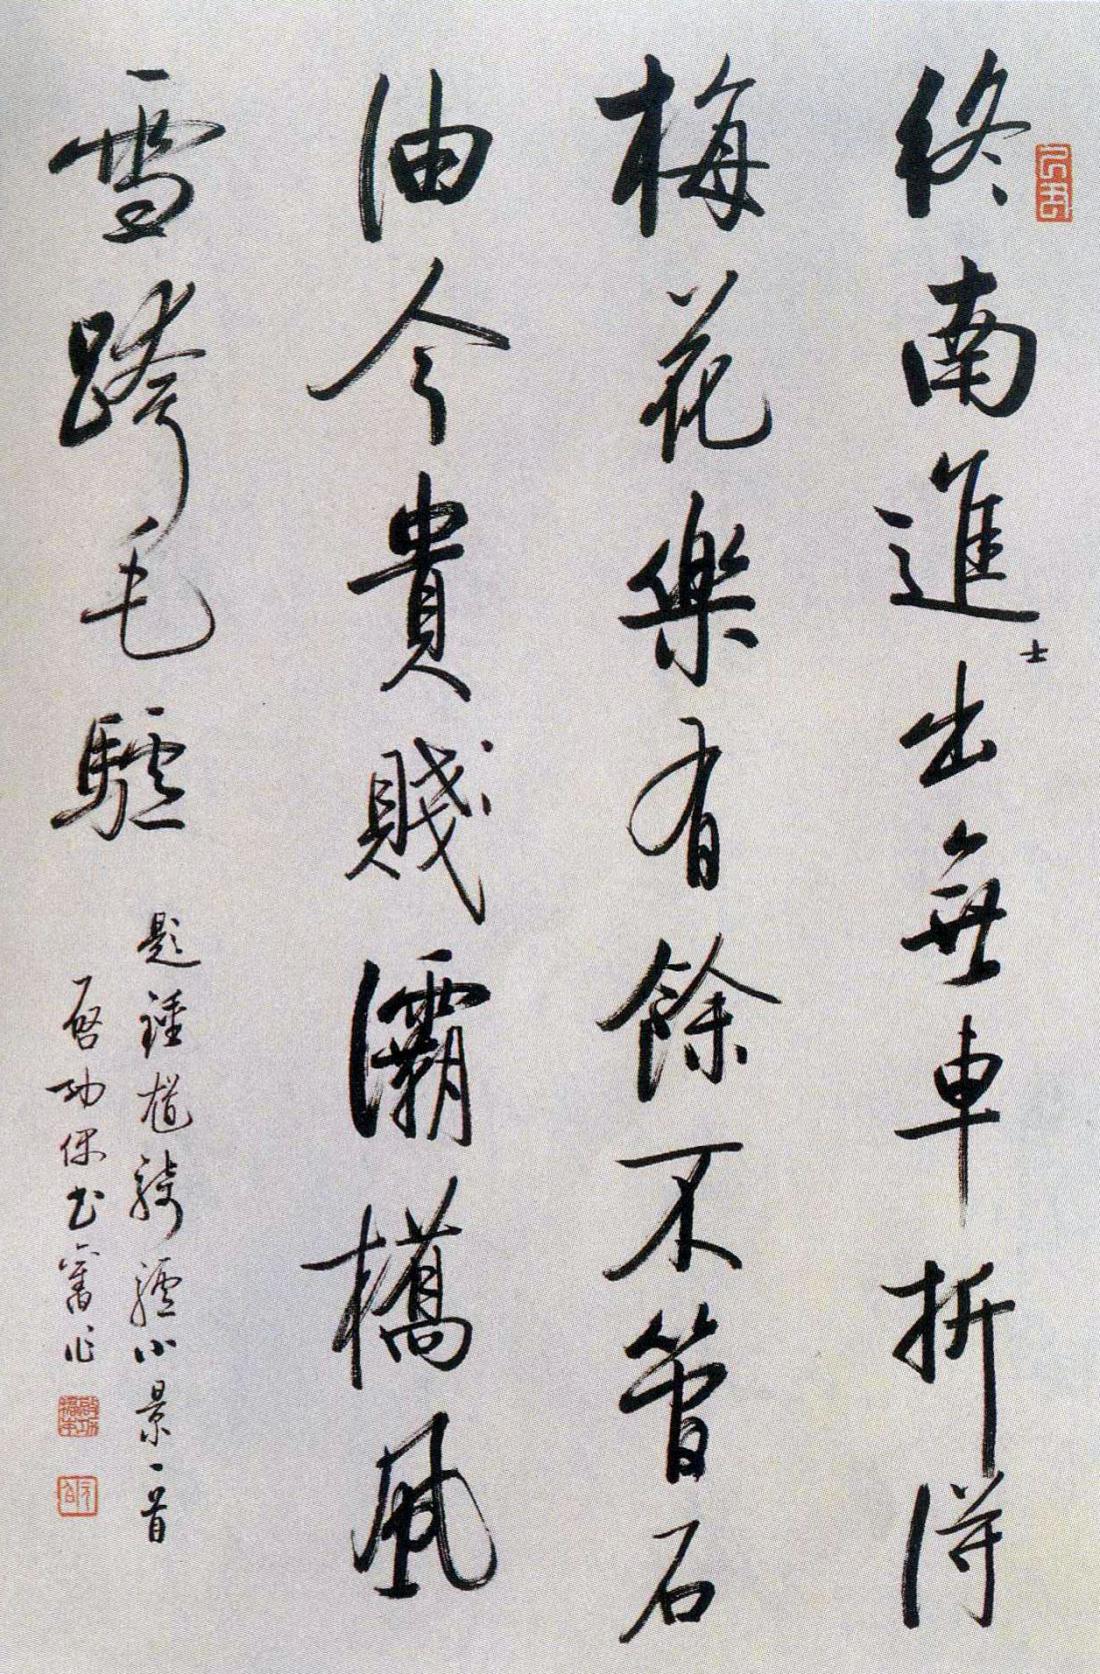 終南進士出無車折得
梅花樂有餘不管石
油今貴賤灞橋風
雪跨毛驢
題鍾馗騎驢小景一首
启功書舊作